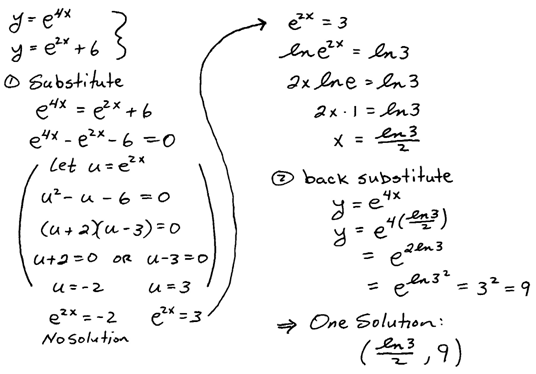 y = e^{4x}
y = e^{2x} + 6
① Substitute
e^{4x} = e^{2x} + 6
e^{4x} - e^{2x} - 6 = 0
Let u = e^{2x}
u² - u - 6 = 0
(u + 2)(u - 3) = 0
u + 2 = 0 OR u - 3 = 0
u = -2 u = 3
e^{2x} = -2 e^{2x} = 3
No solution
e^{2x} = 3
ln e^{2x} = ln 3
2x ln e = ln 3
2x · 1 = ln 3
x = ln 3 / 2
② back substitute
y = e^{4x}
y = e^{4(ln 3 / 2)}
= e^{2 ln 3}
= e^{ln 3²} = 3² = 9
⇒ One Solution:
(ln 3 / 2, 9)